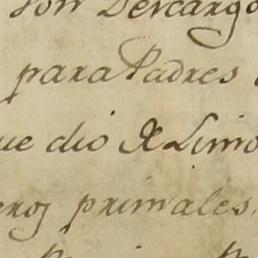 Son Descargo
para Padres
ue dio de Limo
eros primales.